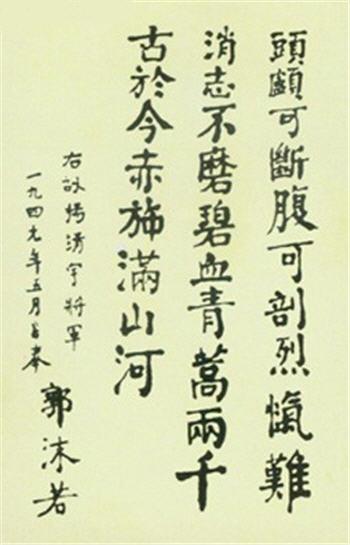 頭顱可斷腹可剖烈愾難
消志不磨碧血青蒿兩千
古於今赤旆滿山河
右楊靖宇將軍
一九四九年五月
郭沫若